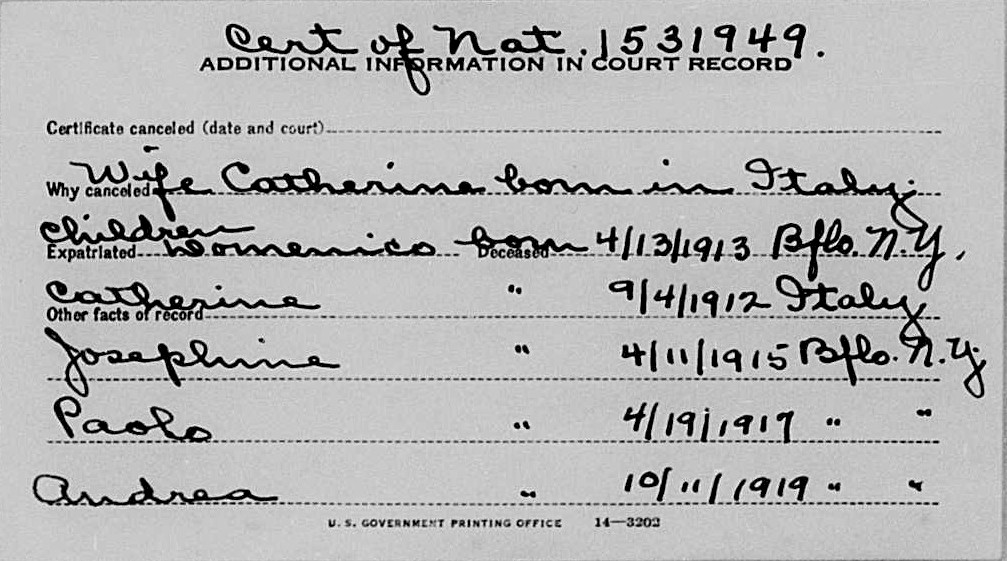 Cert of Nat. 1531949.
ADDITIONAL INFORMATION IN COURT RECORD
Certificate canceled (date and court)
Wife Catherine born in Italy.
Why canceled
Children Domenico born 4/13/1913 Bflo. N.Y.
Expatriated Deceased
Catherine " 9/4/1912 Italy
Other facts of record
Josephine " 4/11/1915 Bflo. N.Y.
Paolo " 4/19/1917 " "
Andrea " 10/11/1919 " "
U. S. GOVERNMENT PRINTING OFFICE 14—3202